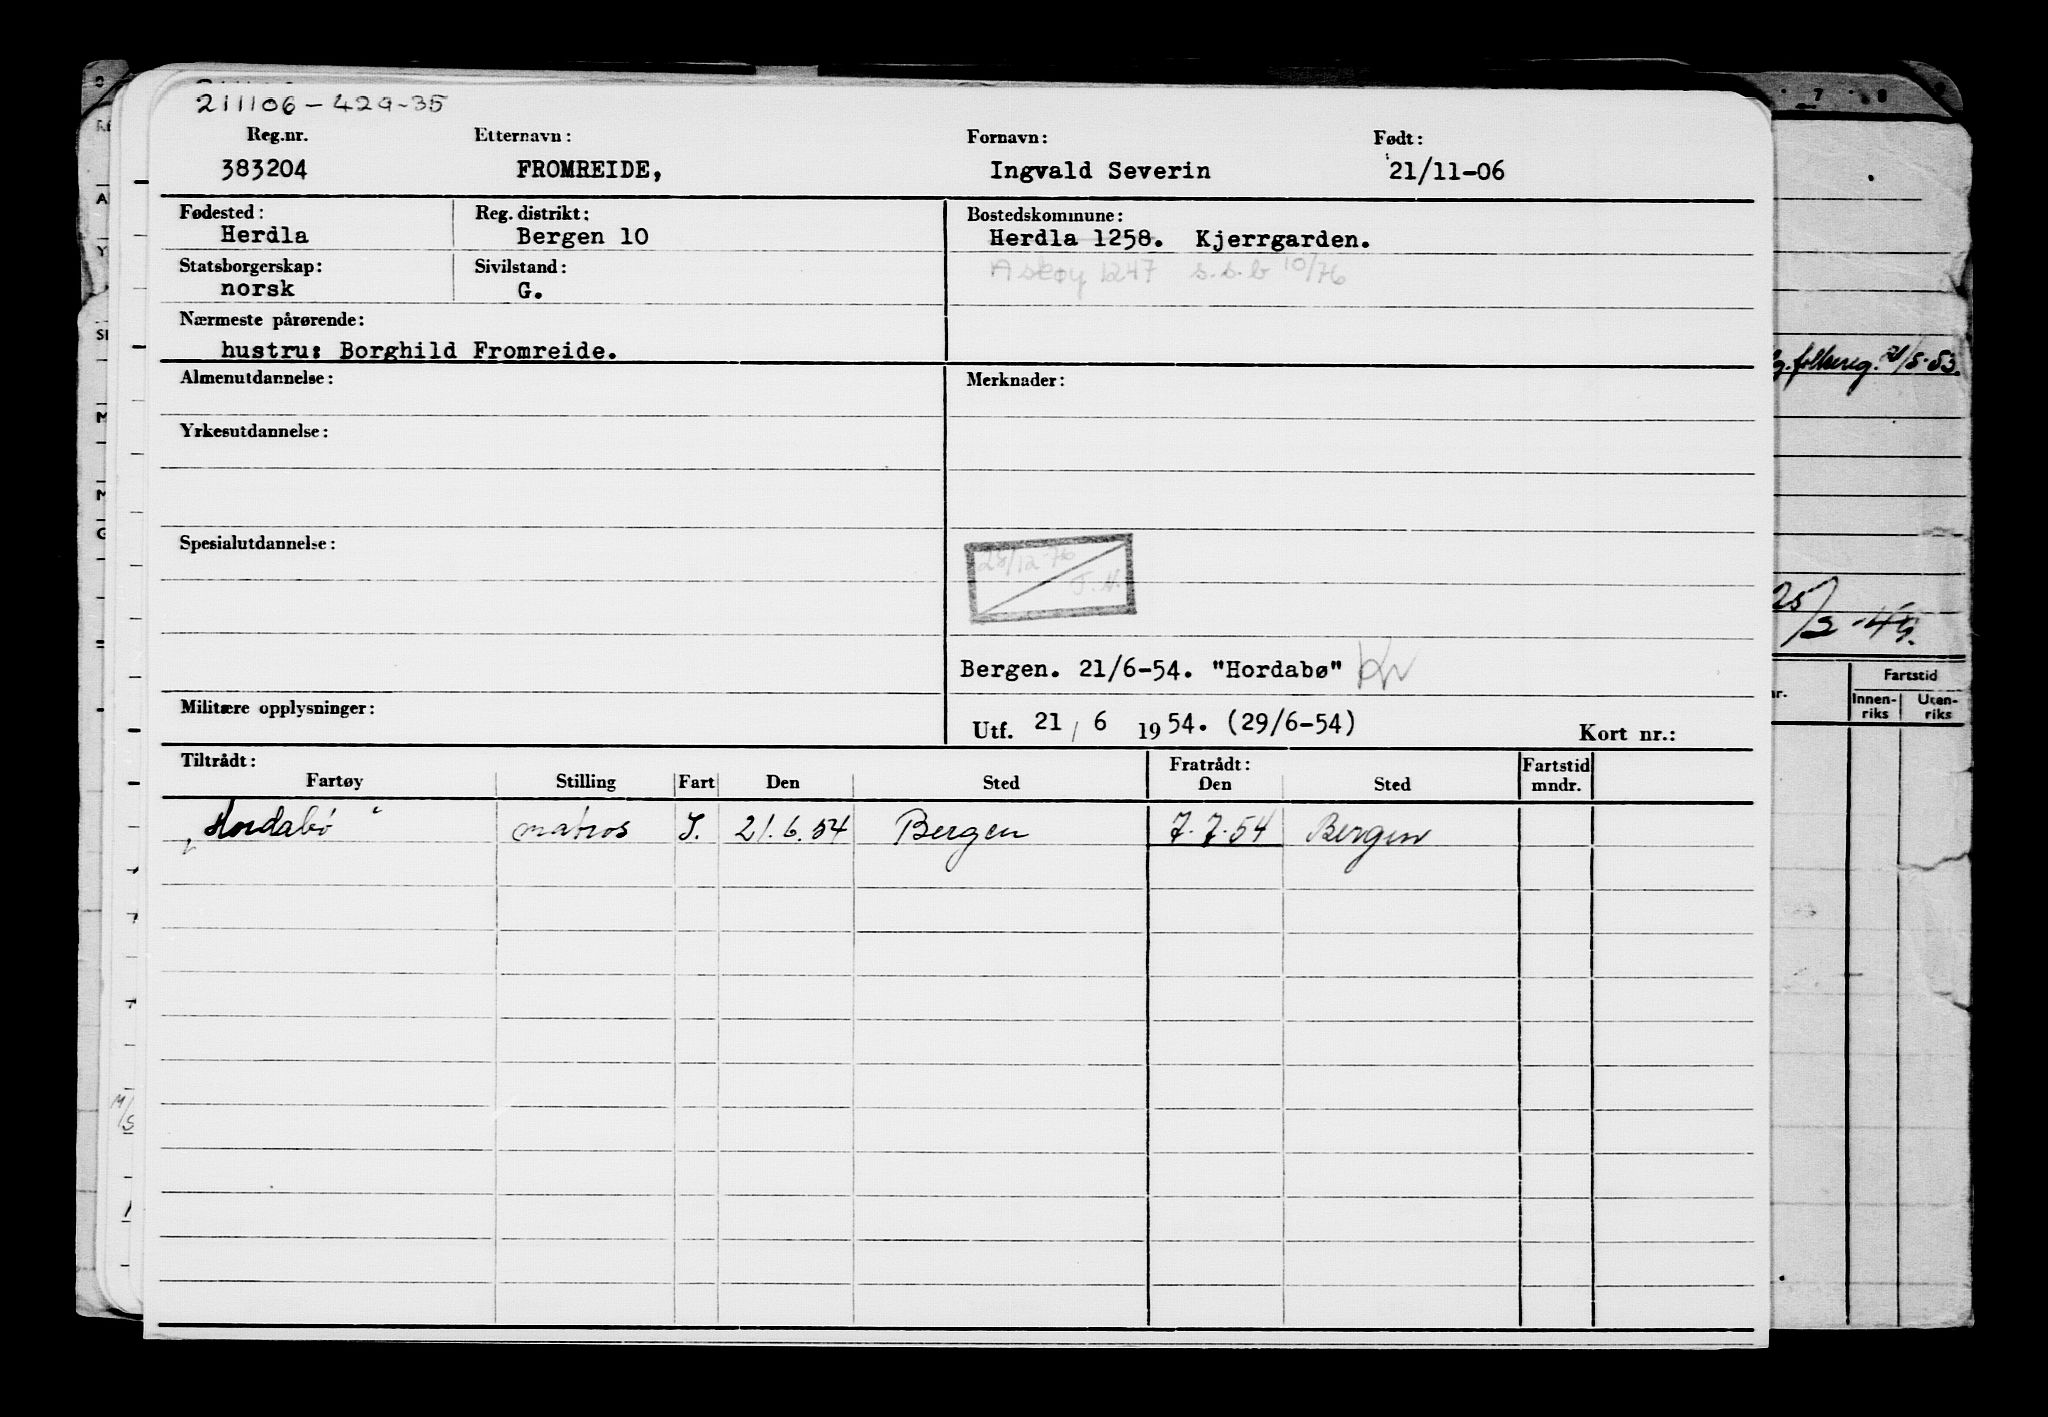 211106-429-35
Reg.nr. Etternavn: Fornavn: Født:
383204 FROMREIDE, Ingvald Severin 21/11-06
Fødested: Reg. distrikt: Bostedskommune:
Herdla Bergen 10 Herdla 1258. Kjerrgarden.
Statsborgerskap: Sivilstand: Askøy 1247 s.s.b 10/76
norsk G.
Nærmeste pårørende:
hustru: Borghild Fromreide.
Almenutdannelse: Merknader:
Yrkesutdannelse:
Spesialutdannelse:
28/12-76
T.H.
Bergen. 21/6-54. "Hordabø"
Militære opplysninger:
Utf. 21/6 1954. (29/6-54) Kort nr.:
Tiltrådt: Fratrådt: Fartstid
Fartøy Stilling Fart Den Sted Den Sted mndr.
"Hordabø" matros I. 21.6.54 Bergen 7.7.54 Bergen
7 8 9
folkereg. 21/5-53.
25/3-45.
Fartstid
Innen-riks Uten-riks